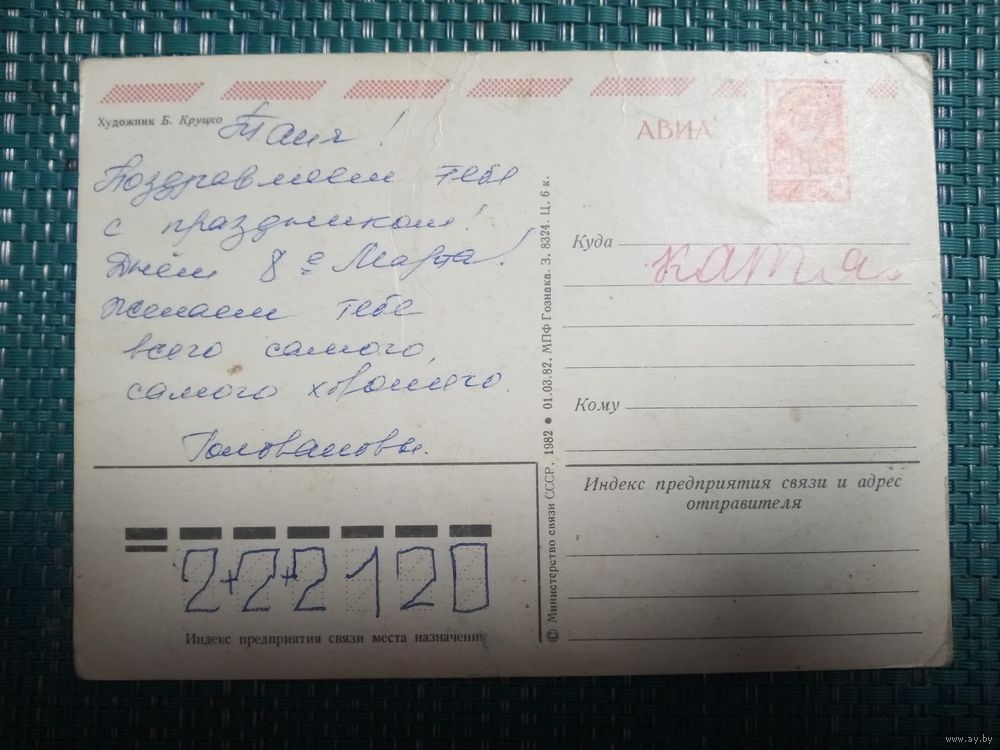 Художник Б. Круцко
Таня!
Поздравляем тебе
с праздником!
Днём 8е Марта!
Желаем тебе
всего самого,
самого хорошего.
Головановы.
2+2+2120
Индекс предприятия связи места назначения
© Министерство связи СССР, 1982 ● 01.03.82. МПФ Гознака. З. 8324. Ц. 6 к.
АВИА
Куда
катя
Кому
Индекс предприятия связи и адрес
отправителя
www.ay.by